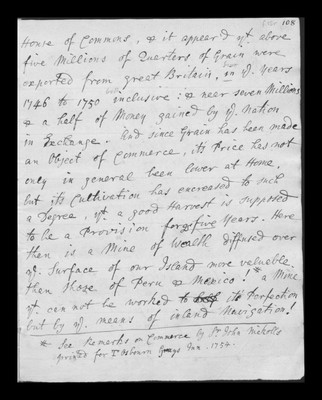 108
House of Commons, & it appeard yt. above
five Millions of Quarters of Grain were
exported from great Britain, in ye. Years
1746 to 1750 inclusive: & near seven Millions
& a half of Money gained by ye. Nation
in Exchange. And since Grain has been made
an Object of Commerce, its Price has not
only in general been lower at Home
but its Cultivation has encreased to such
a Degree, yt. a good Harvest is supposed
to be a Provision for five Years. Here
then is a Mine of Wealth diffused over
ye. Surface of our Island more valuable
then those of Peru & Mexico!* a Mine
yt. can not be worked to its Perfection
but by ye. means of inland Navigation!
* See Remarks on Commerce by Sr. John Nickolls
printed for T. Osbourn Grays Inn. 1754.